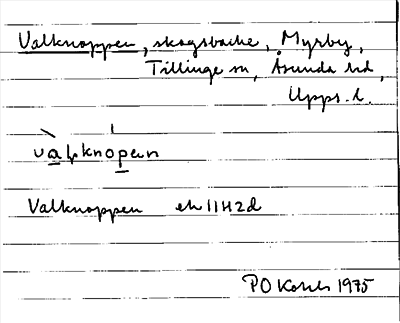 Valknoppen, skogsbacke, Myrby,
Tillinge sn, Åsunda hd,
Upps. l.
valknopen
Valknoppen ek 11H2d
PO 1975